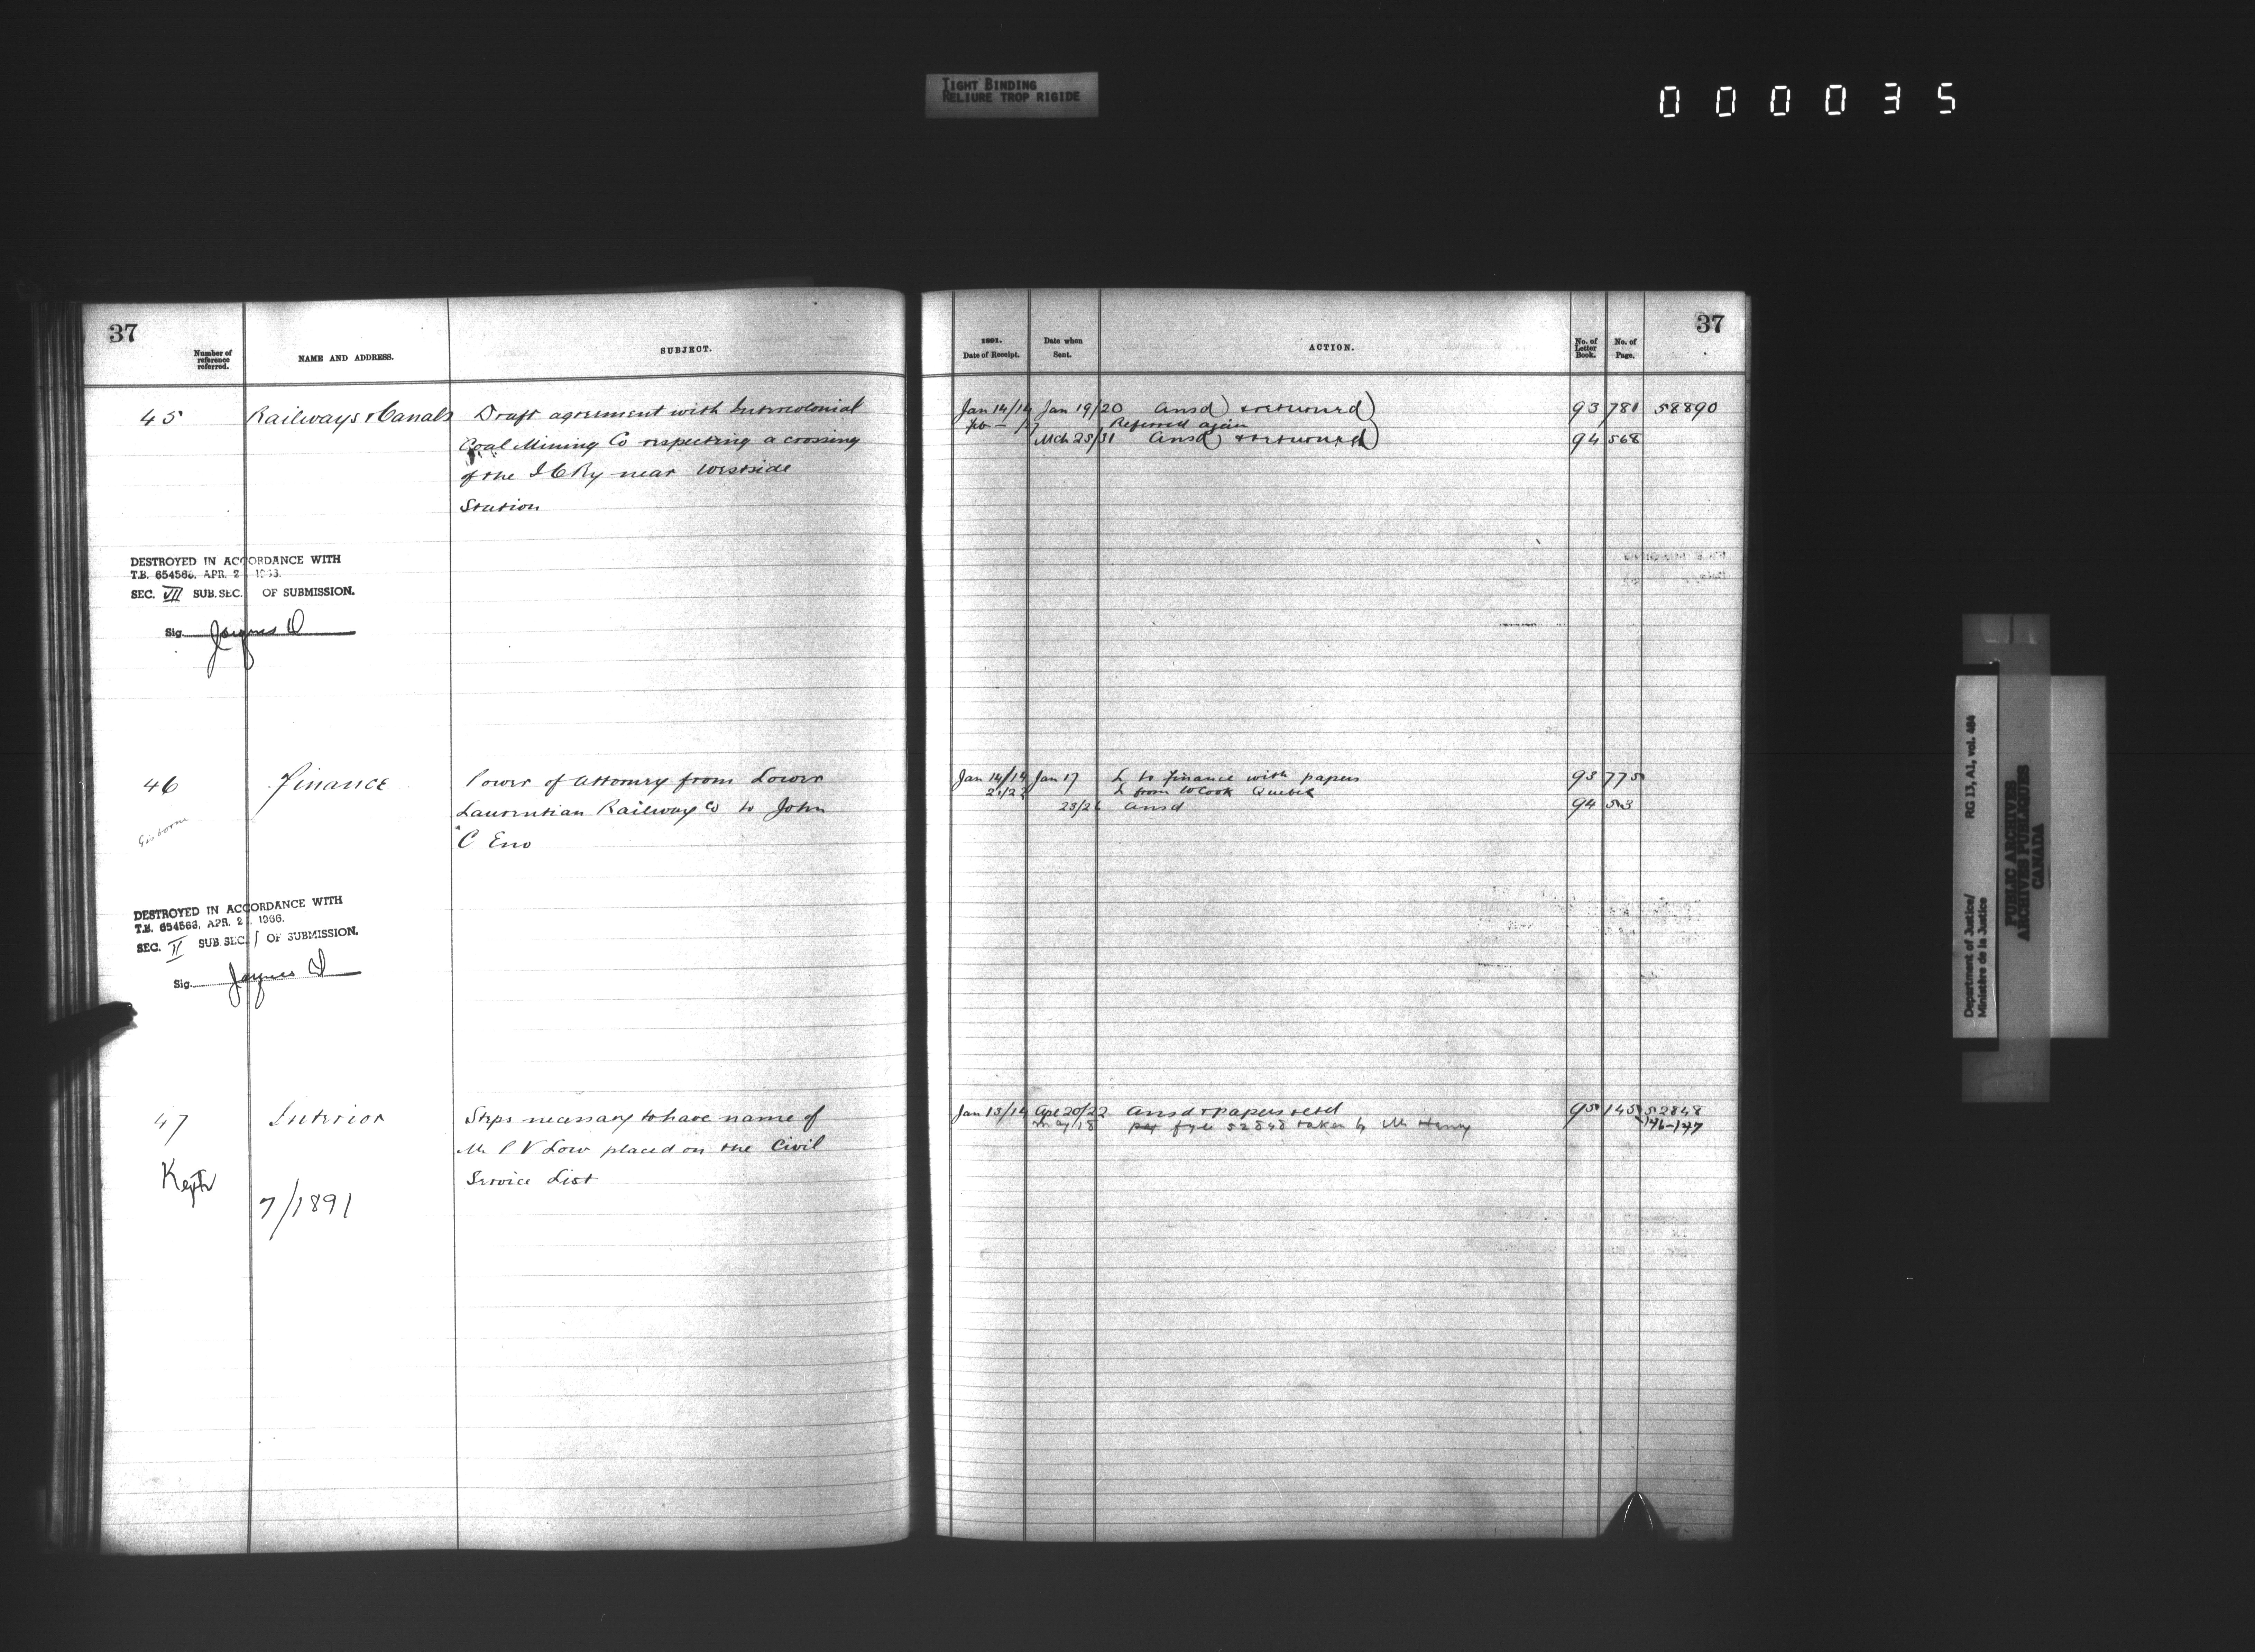 TIGHT BINDING
RELIURE TROP RIGIDE
000035
37
Number of reference referred.
NAME AND ADDRESS.
SUBJECT.
45 Railways & Canals Draft agreement with Intercolonial
Coal Mining Co respecting a crossing
of the I C Ry near Westside
Station
DESTROYED IN ACCORDANCE WITH
T.B. 654566, APR. 2
SEC. VII SUB. SEC. OF SUBMISSION.
Sig.
46 Finance Power of Attorney from Lower
Laurentian Railway Co to John
C Eno
Gisborne
DESTROYED IN ACCORDANCE WITH
T.B. 654566, APR. 2 1966.
SEC. II SUB. SEC. 1 OF SUBMISSION.
Sig.
47 Interior Steps necessary to have name of
Mr P V Low placed on the Civil
Service List
Kept
7/1891
37
1891.
Date of Receipt.
Date when Sent.
ACTION.
No. of Letter Book.
No. of Page.
Jan 14/14 Jan 19/20 Ansd & returned 93 781 58890
Referred again
Mch 25/31 Ansd & returned 94 568
Jan 14/14 Jan 17 L to Finance with papers 93 775
L from W Cook Quebec
23/26 Ansd 94 53
Jan 13/14 Apl 20/22 Ansd & papers retd 95 145 52848
May/18 fyle 52848 taken by Mr Henry 146-147
Department of Justice/
Ministère de la Justice
RG 13, A1, vol. 464
PUBLIC ARCHIVES
ARCHIVES PUBLIQUES
CANADA